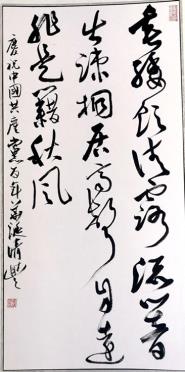 垂緌飲清露流響
出疎桐居高聲自遠
非是藉秋風
慶祝中國共產黨百年華誕